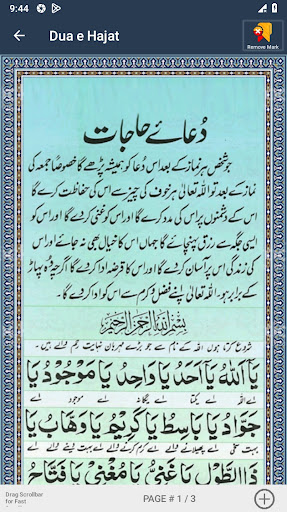 9:44
Dua e Hajat
Remove Mark
دُعائے حاجات
جو شخص ہر نماز کے بعد اس دُعا کو ہمیشہ پڑھے گا خصوصاً جمعہ کی
نماز کے بعد تو اللہ تعالیٰ ہر خوف کی چیز سے اس کی حفاظت کرے گا
اس کے دشمنوں پر اس کی مدد کرے گا اور اس کو غنی کر دے گا اور اس کو
ایسی جگہ سے رزق پہنچائے گا جہاں اس کا خیال بھی نہ جائے گا اور اس
کی زندگی اس پر آسان کر دے گا اور اس کا قرضہ ادا کر دے گا اگرچہ وہ پہاڑ
کے برابر ہو، اللہ تعالیٰ اپنے فضل و کرم سے اس کو ادا کر دے گا۔
بِسْمِ اللهِ الرَّحْمٰنِ الرَّحِيْمِ
شروع کرتا ہوں اللہ کے نام سے جو بڑے مہربان نہایت رحم والے ہیں۔
يَآ اَللهُ يَآ اَحَدُ يَا وَاحِدُ يَا مَوْجُوْدُ يَا
اے اللہ اے یکتا اے یگانہ اے موجود اے
جَوَّادُ يَا بَاسِطُ يَا كَرِيْمُ يَا وَهَّابُ يَا
بہت سخی اے پھیلانے والے اے کرم کرنے والے اے بہت دینے والے اے
ذَا الطَّوْلِ يَا غَنِيُّ يَا مُغْنِيْ يَا فَتَّاحُ
Drag Scrollbar
for Fast
PAGE # 1 / 3